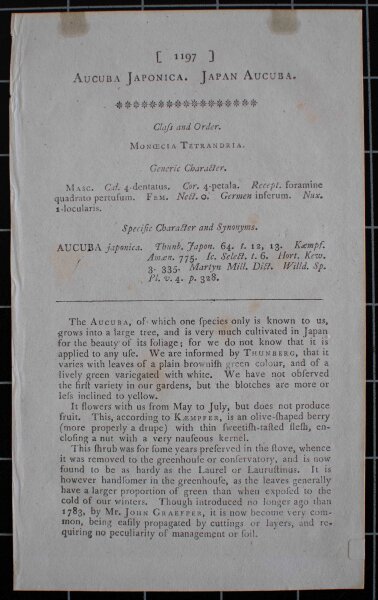 [ 1197 ]
AUCUBA JAPONICA. JAPAN AUCUBA.
****************
Claſs and Order.
MONŒCIA TETRANDRIA.
Generic Character.
MASC. Cal. 4-dentatus. Cor. 4-petala. Recept. foramine
quadrato pertuſum. FEM. Nect. 0. Germen inferum. Nux.
1-locularis.
Specific Character and Synonyms.
AUCUBA japonica. Thunb. Japon. 64. t. 12, 13. Kæmpf.
Amœn. 775. Ic. Select. t. 6. Hort. Kew.
3. 335. Martyn Mill. Dict. Willd. Sp.
Pl. v. 4. p. 328.
The AUCUBA, of which one ſpecies only is known to us,
grows into a large tree, and is very much cultivated in Japan
for the beauty of its foliage; for we do not know that it is
applied to any uſe. We are informed by THUNBERG, that it
varies with leaves of a plain browniſh green colour, and of a
lively green variegated with white. We have not obſerved
the firſt variety in our gardens, but the blotches are more or
leſs inclined to yellow.
It flowers with us from May to July, but does not produce
fruit. This, according to KÆMPFER, is an olive-ſhaped berry
(more properly a drupe) with thin ſweetiſh-taſted fleſh, en-
cloſing a nut with a very nauſeous kernel.
This ſhrub was for ſome years preſerved in the ſtove, whence
it was removed to the greenhouſe or conſervatory, and is now
found to be as hardy as the Laurel or Lauruſtinus. It is
however handſomer in the greenhouſe, as the leaves generally
have a larger proportion of green than when expoſed to the
cold of our winters. Though introduced no longer ago than
1783, by Mr. JOHN GRAEFFER, it is now become very com-
mon, being eaſily propagated by cuttings or layers, and re-
quiring no peculiarity of management or ſoil.